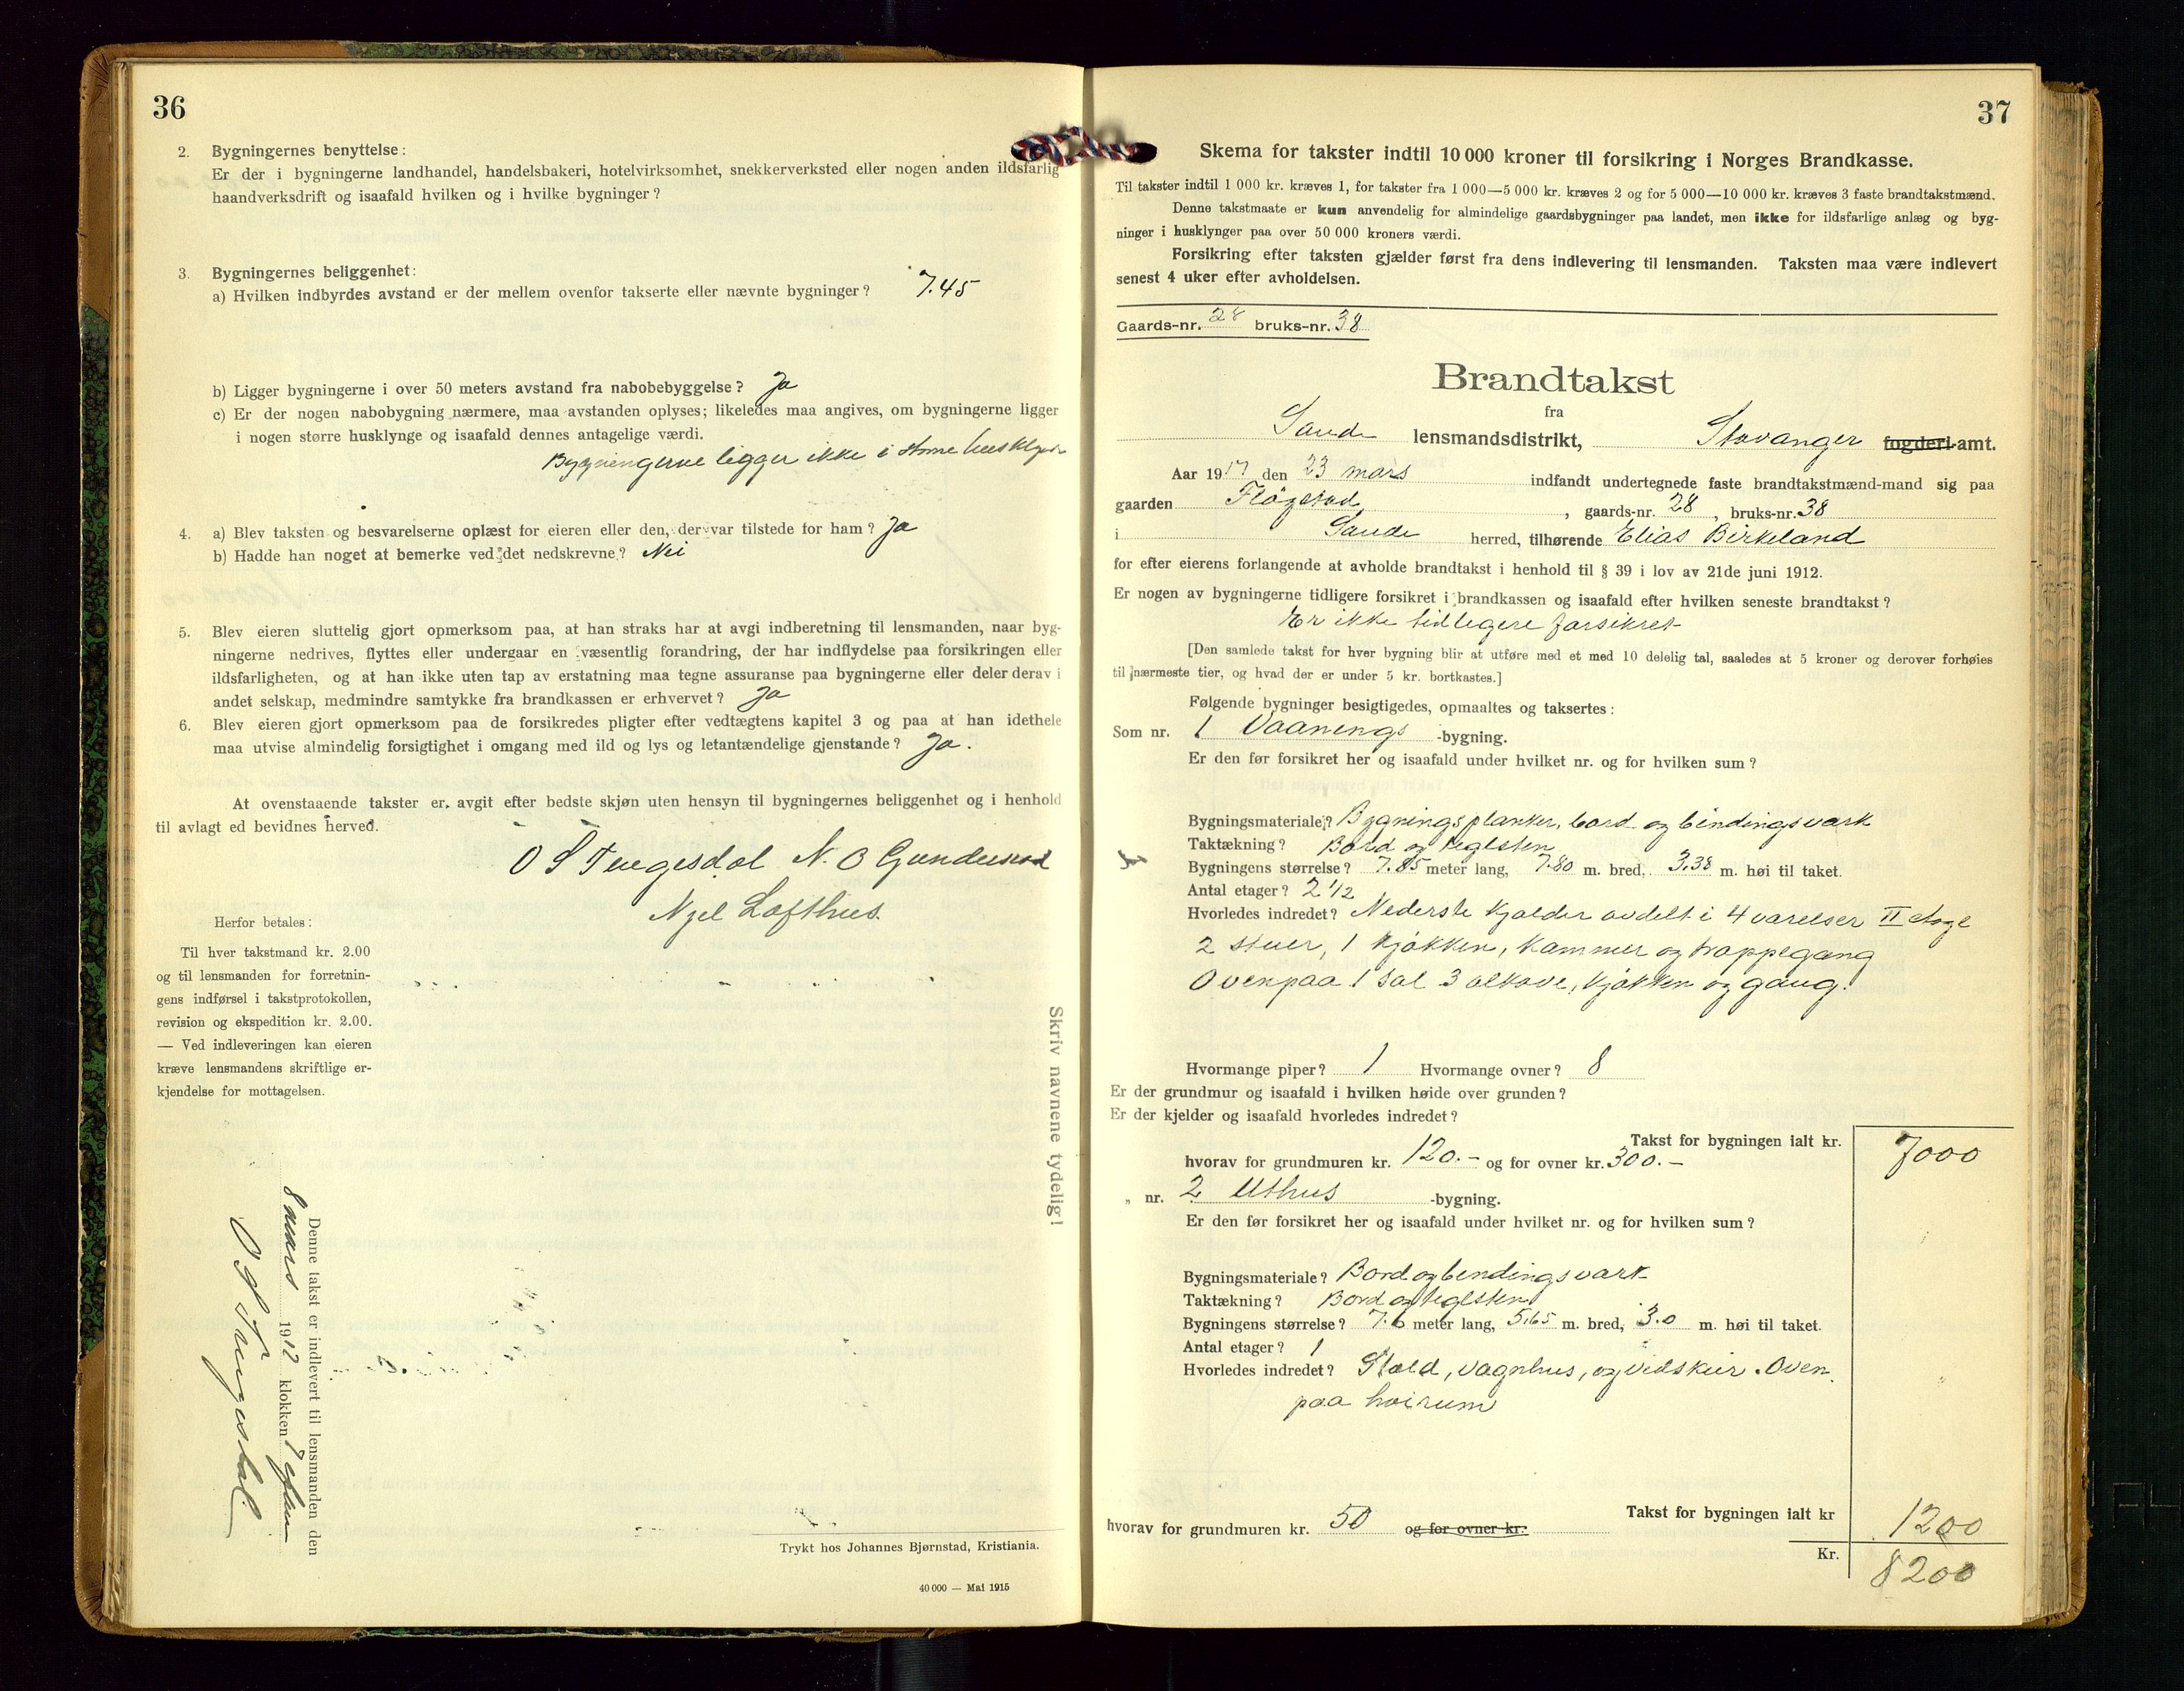 36
2. Bygningernes benyttelse:
Er der i bygningerne landhandel, handelsbakeri, hotelvirksomhet, snekkerverksted eller nogen anden ildsfarlig
haandverksdrift og isaafald hvilken og i hvilke bygninger?
3. Bygningernes beliggenhet:
a) Hvilken indbyrdes avstand er der mellem ovenfor takserte eller nævnte bygninger? 7.45
b) Ligger bygningerne i over 50 meters avstand fra nabobebyggelse? Ja
c) Er der nogen nabobygning nærmere, maa avstanden oplyses; likeledes maa angives, om bygningerne ligger
i nogen større husklynge og isaafald dennes antagelige værdi.
Bygningerne ligger ikke i større husklynge
4. a) Blev taksten og besvarelserne oplæst for eieren eller den, der var tilstede for ham? Ja
b) Hadde han noget at bemerke ved det nedskrevne? Nei
5. Blev eieren sluttelig gjort opmerksom paa, at han straks har at avgi indberetning til lensmanden, naar byg-
ningerne nedrives, flyttes eller undergaar en væsentlig forandring, der har indflydelse paa forsikringen eller
ildsfarligheten, og at han ikke uten tap av erstatning maa tegne assuranse paa bygningerne eller deler derav i
andet selskap, medmindre samtykke fra brandkassen er erhvervet? Ja
6. Blev eieren gjort opmerksom paa de forsikredes pligter efter vedtægtens kapitel 3 og paa at han idethele
maa utvise almindelig forsigtighet i omgang med ild og lys og letantændelige gjenstande? Ja.
At ovenstaaende takster er avgit efter bedste skjøn uten hensyn til bygningernes beliggenhet og i henhold
til avlagt ed bevidnes herved.
O S Tengesdal N. O Gunderstad
Njel Lofthus.
Herfor betales:
Til hver takstmand kr. 2.00
og til lensmanden for forretnin-
gens indførsel i takstprotokollen,
revision og ekspedition kr. 2.00.
— Ved indleveringen kan eieren
kræve lensmandens skriftlige er-
kjendelse for mottagelsen.
Skriv navnene tydelig!
Denne takst er indlevert til lensmanden den
8 mars 1917 klokken 7 eftm
O S Tengesdal
Trykt hos Johannes Bjørnstad, Kristiania.
40 000 — Mai 1915
37
Skema for takster indtil 10 000 kroner til forsikring i Norges Brandkasse.
Til takster indtil 1 000 kr. kræves 1, for takster fra 1 000—5 000 kr. kræves 2 og for 5 000—10 000 kr. kræves 3 faste brandtakstmænd.
Denne takstmaate er kun anvendelig for almindelige gaardsbygninger paa landet, men ikke for ildsfarlige anlæg og byg-
ninger i husklynger paa over 50 000 kroners værdi.
Forsikring efter taksten gjælder først fra dens indlevering til lensmanden. Taksten maa være indlevert
senest 4 uker efter avholdelsen.
Gaards-nr. 28 bruks-nr. 38
Brandtakst
fra
Saude lensmandsdistrikt, Stavanger fogderi-amt.
Aar 1917 den 23 mars indfandt undertegnede faste brandtakstmænd-mand sig paa
gaarden Fløgstad, gaards-nr. 28, bruks-nr. 38
i Saude herred, tilhørende Elias Birkeland
for efter eierens forlangende at avholde brandtakst i henhold til § 39 i lov av 21de juni 1912.
Er nogen av bygningerne tidligere forsikret i brandkassen og isaafald efter hvilken seneste brandtakst?
Er ikke tidligere forsikret
[Den samlede takst for hver bygning blir at utføre med et med 10 delelig tal, saaledes at 5 kroner og derover forhøies
til nærmeste tier, og hvad der er under 5 kr. bortkastes.]
Følgende bygninger besigtigedes, opmaaltes og taksertes:
Som nr. 1 Vaanings -bygning.
Er den før forsikret her og isaafald under hvilket nr. og for hvilken sum?
Bygningsmateriale? Bygningsplanker, bord og bindingsværk
Taktækning? Bord og teglsten
Bygningens størrelse? 7.85 meter lang, 7.80 m. bred, 3.38 m. høi til taket.
Antal etager? 2 1/2
Hvorledes indredet? Nederste kjælder avdelt i 4 værelser II etage
2 stuer, 1 kjøkken, kammer og trappegang
Ovenpaa 1 sal 3 alkove, kjøkken og gang.
Hvormange piper? 1 Hvormange ovner? 8
Er der grundmur og isaafald i hvilken høide over grunden?
Er der kjelder og isaafald hvorledes indredet?
Takst for bygningen ialt kr. 7000
hvorav for grundmuren kr. 120.- og for ovner kr. 300.-
„ nr. 2 Uthus -bygning.
Er den før forsikret her og isaafald under hvilket nr. og for hvilken sum?
Bygningsmateriale? Bord og bendingsværk
Taktækning? Bord og teglsten
Bygningens størrelse? 7.6 meter lang, 5.65 m. bred, 3.0 m. høi til taket.
Antal etager? 1
Hvorledes indredet? Stald, vagnhus, og vedskur. Oven
paa høirum
Takst for bygningen ialt kr 1200
hvorav for grundmuren kr. 50 og for ovner kr.
Kr. 8200